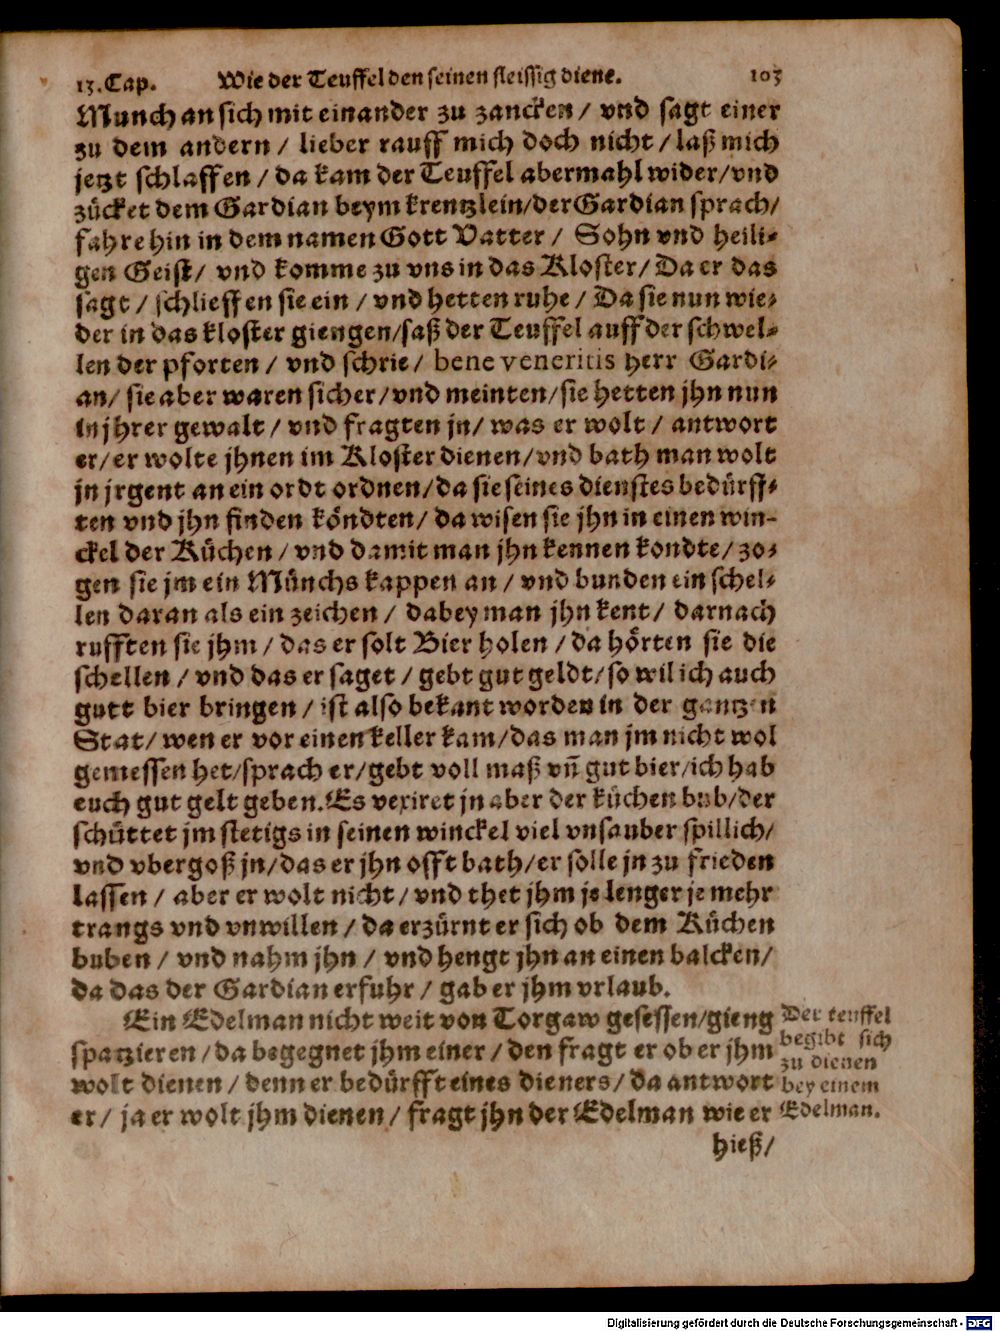 13. Cap. Wie der Teuffel den seinen fleissig diene. 103
Munch an sich mit einander zu zancken / vnd sagt einer
zu dem andern / lieber rauff mich doch nicht / laß mich
jetzt schlaffen / da kam der Teuffel abermahl wider / vnd
zücket dem Gardian beym krentzlein / der Gardian sprach /
fahre hin in dem namen Gott Vatter / Sohn vnd heili-
gen Geist / vnd komme zu vns in das Kloster / Da er das
sagt / schlieffen sie ein / vnd hetten ruhe / Da sie nun wie-
der in das kloster giengen / saß der Teuffel auff der schwel-
len der pforten / vnd schrie / bene veneritis herr Gardi-
an / sie aber waren sicher / vnd meinten / sie hetten jhn nun
in jhrer gewalt / vnd fragten jn / was er wolt / antwort
er / er wolte jhnen im Kloster dienen / vnd bath man wolt
jn jrgent an ein ordt ordnen / da sie seines dienstes bedürff-
ten vnd jhn finden köndten / da wisen sie jhn in einen win-
ckel der Küchen / vnd damit man jhn kennen kondte / zo-
gen sie jm ein Münchs kappen an / vnd bunden ein schel-
len daran als ein zeichen / dabey man jhn kent / darnach
rufften sie jhm / das er solt Bier holen / da hörten sie die
schellen / vnd das er saget / gebt gut geldt / so wil ich auch
gutt bier bringen / ist also bekant worden in der gantzen
Stat / wen er vor einen keller kam / das man jm nicht wol
gemessen het / sprach er / gebt voll maß vñ gut bier / ich hab
euch gut gelt geben. Es vexiret jn aber der küchen bub / der
schüttet jm stetigs in seinen winckel viel vnsauber spillich /
vnd vbergoß jn / das er jhn offt bath / er solle jn zu frieden
lassen / aber er wolt nicht / vnd thet jhm je lenger je mehr
trangs vnd vnwillen / da erzürnt er sich ob dem Küchen
buben / vnd nahm jhn / vnd hengt jhn an einen balcken /
da das der Gardian erfuhr / gab er jhm vrlaub.
Ein Edelman nicht weit von Torgaw gesessen / gieng
spatzieren / da begegnet jhm einer / den fragt er ob er jhm
wolt dienen / denn er bedürfft eines dieners / da antwort
er / ja er wolt jhm dienen / fragt jhn der Edelman wie er
hieß /
Der teuffel
begibt sich
zu dienen
bey einem
Edelman.
Digitalisierung gefördert durch die Deutsche Forschungsgemeinschaft - DFG